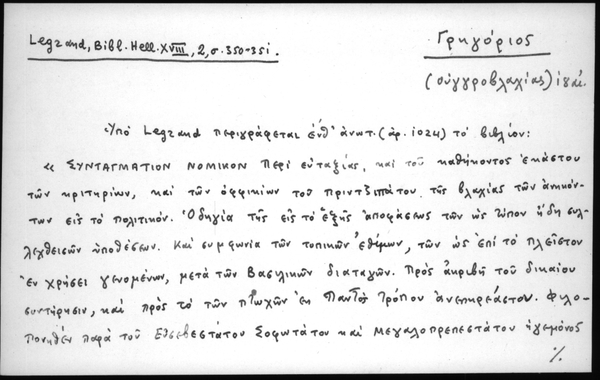 Legrand, Bibl. Hell. XVIII, 2, σ. 350-351.
Γρηγόριος
(οὑγγροβλαχίας)
Ὑπὸ Legrand περιγράφεται ἐνθ' ἀνωτ. (ἀρ. 1024) τὸ βιβλίον:
« ΣΥΝΤΑΓΜΑΤΙΟΝ ΝΟΜΙΚΟΝ Περὶ εὐταξίας, καὶ τοῦ καθήκοντος ἑκάστου
τῶν κριτηρίων, καὶ τῶν ὀφφικίων τοῦ Πριντζιπάτου τῆς βλαχίας τῶν ἀνηκόν-
των εἰς τὸ πολιτικόν. Ὁδηγία τῆς εἰς τὸ ἑξῆς ἀποφάσεως τῶν ὡς τύπον ἤδη συλ-
λεχθεισῶν ὑποθέσεων. Καὶ συμφωνία τῶν τοπικῶν ἐθίμων, τῶν ὡς ἐπὶ τὸ πλεῖστον
ἐν χρήσει γενομένων, μετὰ τῶν Βασιλικῶν διαταγῶν. Πρὸς ἀκριβῆ τοῦ δικαίου
συντήρησιν, καὶ πρὸς τὸ τῶν πτωχῶν ἐκ Παντὸς τρόπου ἀνεπηρέαστον. Φιλο-
πονηθὲν παρὰ τοῦ Εὐσεβεστάτου Σοφωτάτου καὶ Μεγαλοπρεπεστάτου ἡγεμόνος
%